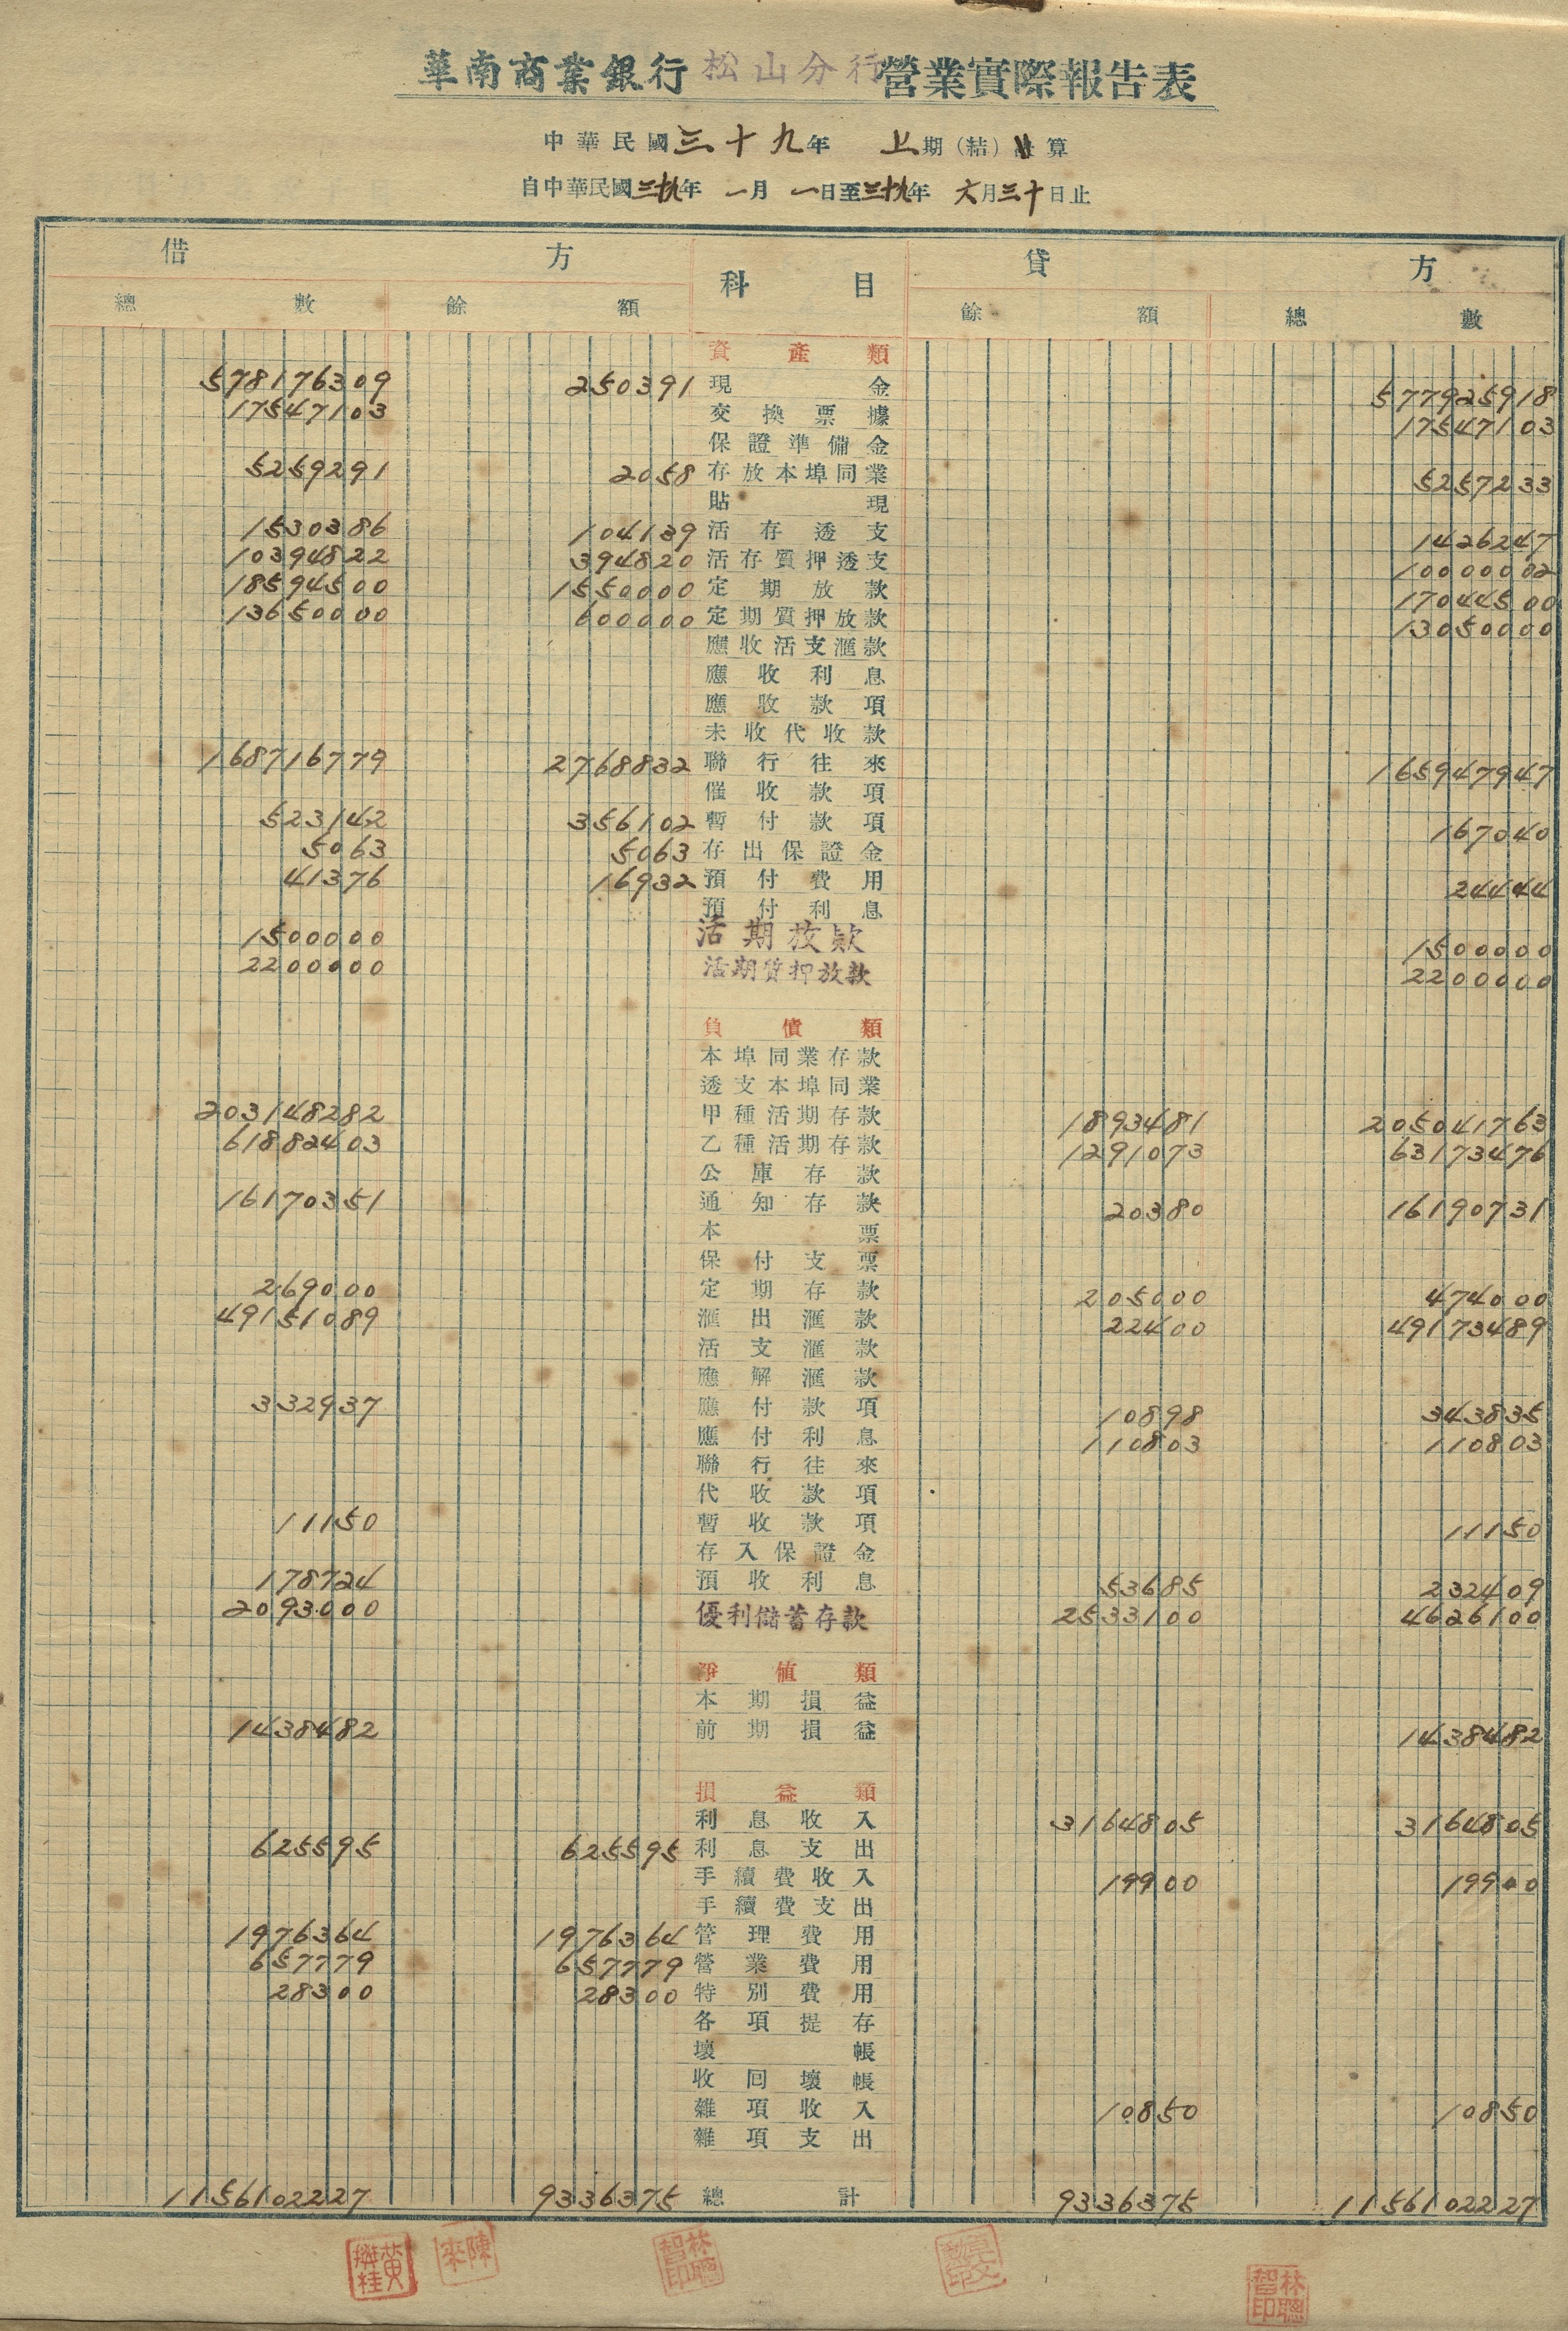 華南商業銀行松山分行營業實際報告表
中華民國三十九年 上期(結)算
自中華民國三十九年 一月 一日至三十九年 六月三十日止
借方 科目 貸方
總數 餘額 餘額 總數
資產類
578176309 250391 現金 577925918
17547103 交換票據 17547103
保證準備金
5259291 2058 存放本埠同業 5257233
貼現
1530386 104139 活存透支 1426247
10394822 394820 活存質押透支 10000002
18594500 1550000 定期放款 17044500
13650000 600000 定期質押放款 13050000
應收活支滙款
應收利息
應收款項
未收代收款
168716779 2768832 聯行往來 165947947
催收款項
523142 356102 暫付款項 167040
5063 5063 存出保證金
41376 16932 預付費用 24444
預付利息
1500000 活期放款 1500000
2200000 活期質押放款 2200000
負債類
本埠同業存款
透支本埠同業
203148282 甲種活期存款 1893481 205041763
61882403 乙種活期存款 1291073 63173476
公庫存款
16170351 通知存款 20380 16190731
本票
保付支票
269000 定期存款 205000 474000
49151089 滙出滙款 22400 49173489
活支滙款
應解滙款
332937 應付款項 10898 343835
應付利息 110803 110803
聯行往來
代收款項
11150 暫收款項 11150
存入保證金
178724 預收利息 53685 232409
2093000 優利儲蓄存款 2533100 4626100
淨值類
本期損益
1438482 前期損益 1438482
損益類
利息收入 3164805 3164805
625595 625595 利息支出
手續費收入 19900 19900
手續費支出
1976364 1976364 管理費用
657779 657779 營業費用
28300 28300 特別費用
各項提存
壞帳
收回壞帳
雜項收入 10850 10850
雜項支出
1156102227 9336375 總計 9336375 1156102227
林聰智印
林聰智印